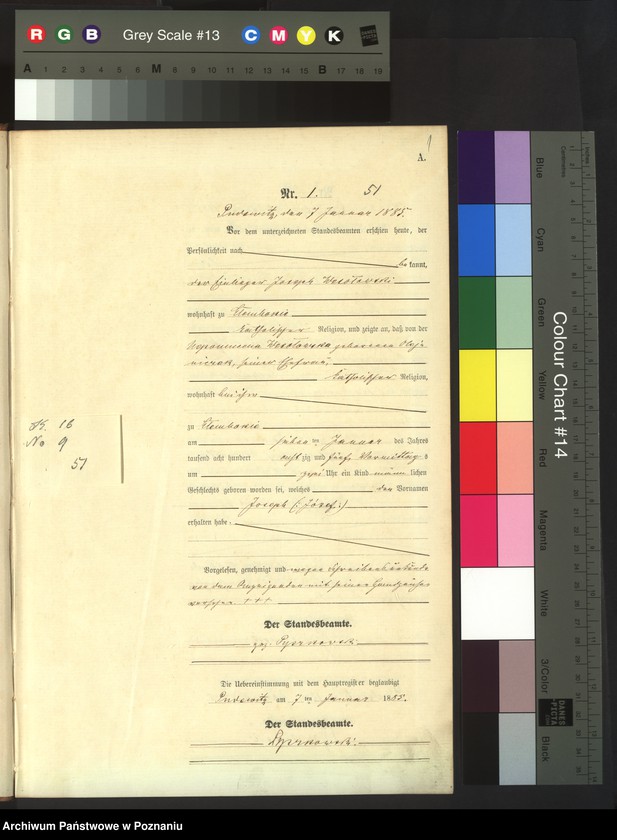 R G B Grey Scale #13 C M Y K DANES PICTA
A 1 2 3 4 5 6 M 8 9 10 11 12 13 14 15 B 17 18 19
1
A.
Nr. 1. 51
Pudewitz, den 7 Januar 1885.
Vor dem unterzeichneten Standesbeamten erschien heute, der
Persönlichkeit nach
bekannt,
der Einlieger Joseph
wohnhaft zu
katholischer Religion, und zeigte an, daß von der
geborenen
seiner Ehefrau,
katholischer Religion,
wohnhaft bei ihm
zu
am sieben ten Januar des Jahres
tausend acht hundert achtzig und fünf Vormittags
um Uhr ein Kind männlichen
Geschlechts geboren worden sei, welches den Vornamen
Joseph (:Józef:)
erhalten habe.
K. 16
No 9
51
Vorgelesen, genehmigt und wegen
von dem Anzeigenden mit seinem Handzeichen
versehen +++
Der Standesbeamte.
gez.
Die Uebereinstimmung mit dem Hauptregister beglaubigt
Pudewitz am 7 ten Januar 1885.
Der Standesbeamte.
Colour Chart #14
Blue
Cyan
Green
Yellow
Red
Magenta
White
3/Color
Black
Centimetres
Inches
DANES PICTA
Archiwum Państwowe w Poznaniu